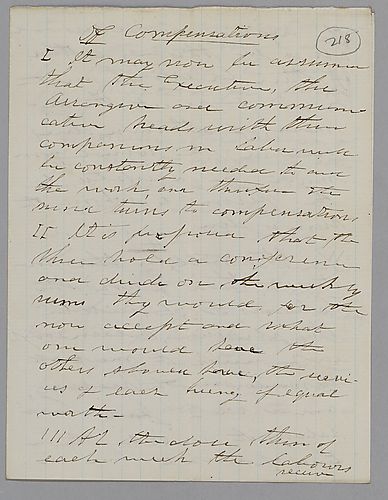 Of Compensations
218
I It may now be assumed
that the Executive, the
Arranging and communi-
cative heads with their
companions in labor will
be constantly needed to and
the work, and therefore the
mind turns to compensations
II It is proposed that the
three hold a conference
and decide on the weekly
sums they would for the
now accept and what
one would have the
others should have, the servi-
ces of each being of equal
worth –
III At the close then of
each week the laborers
receive